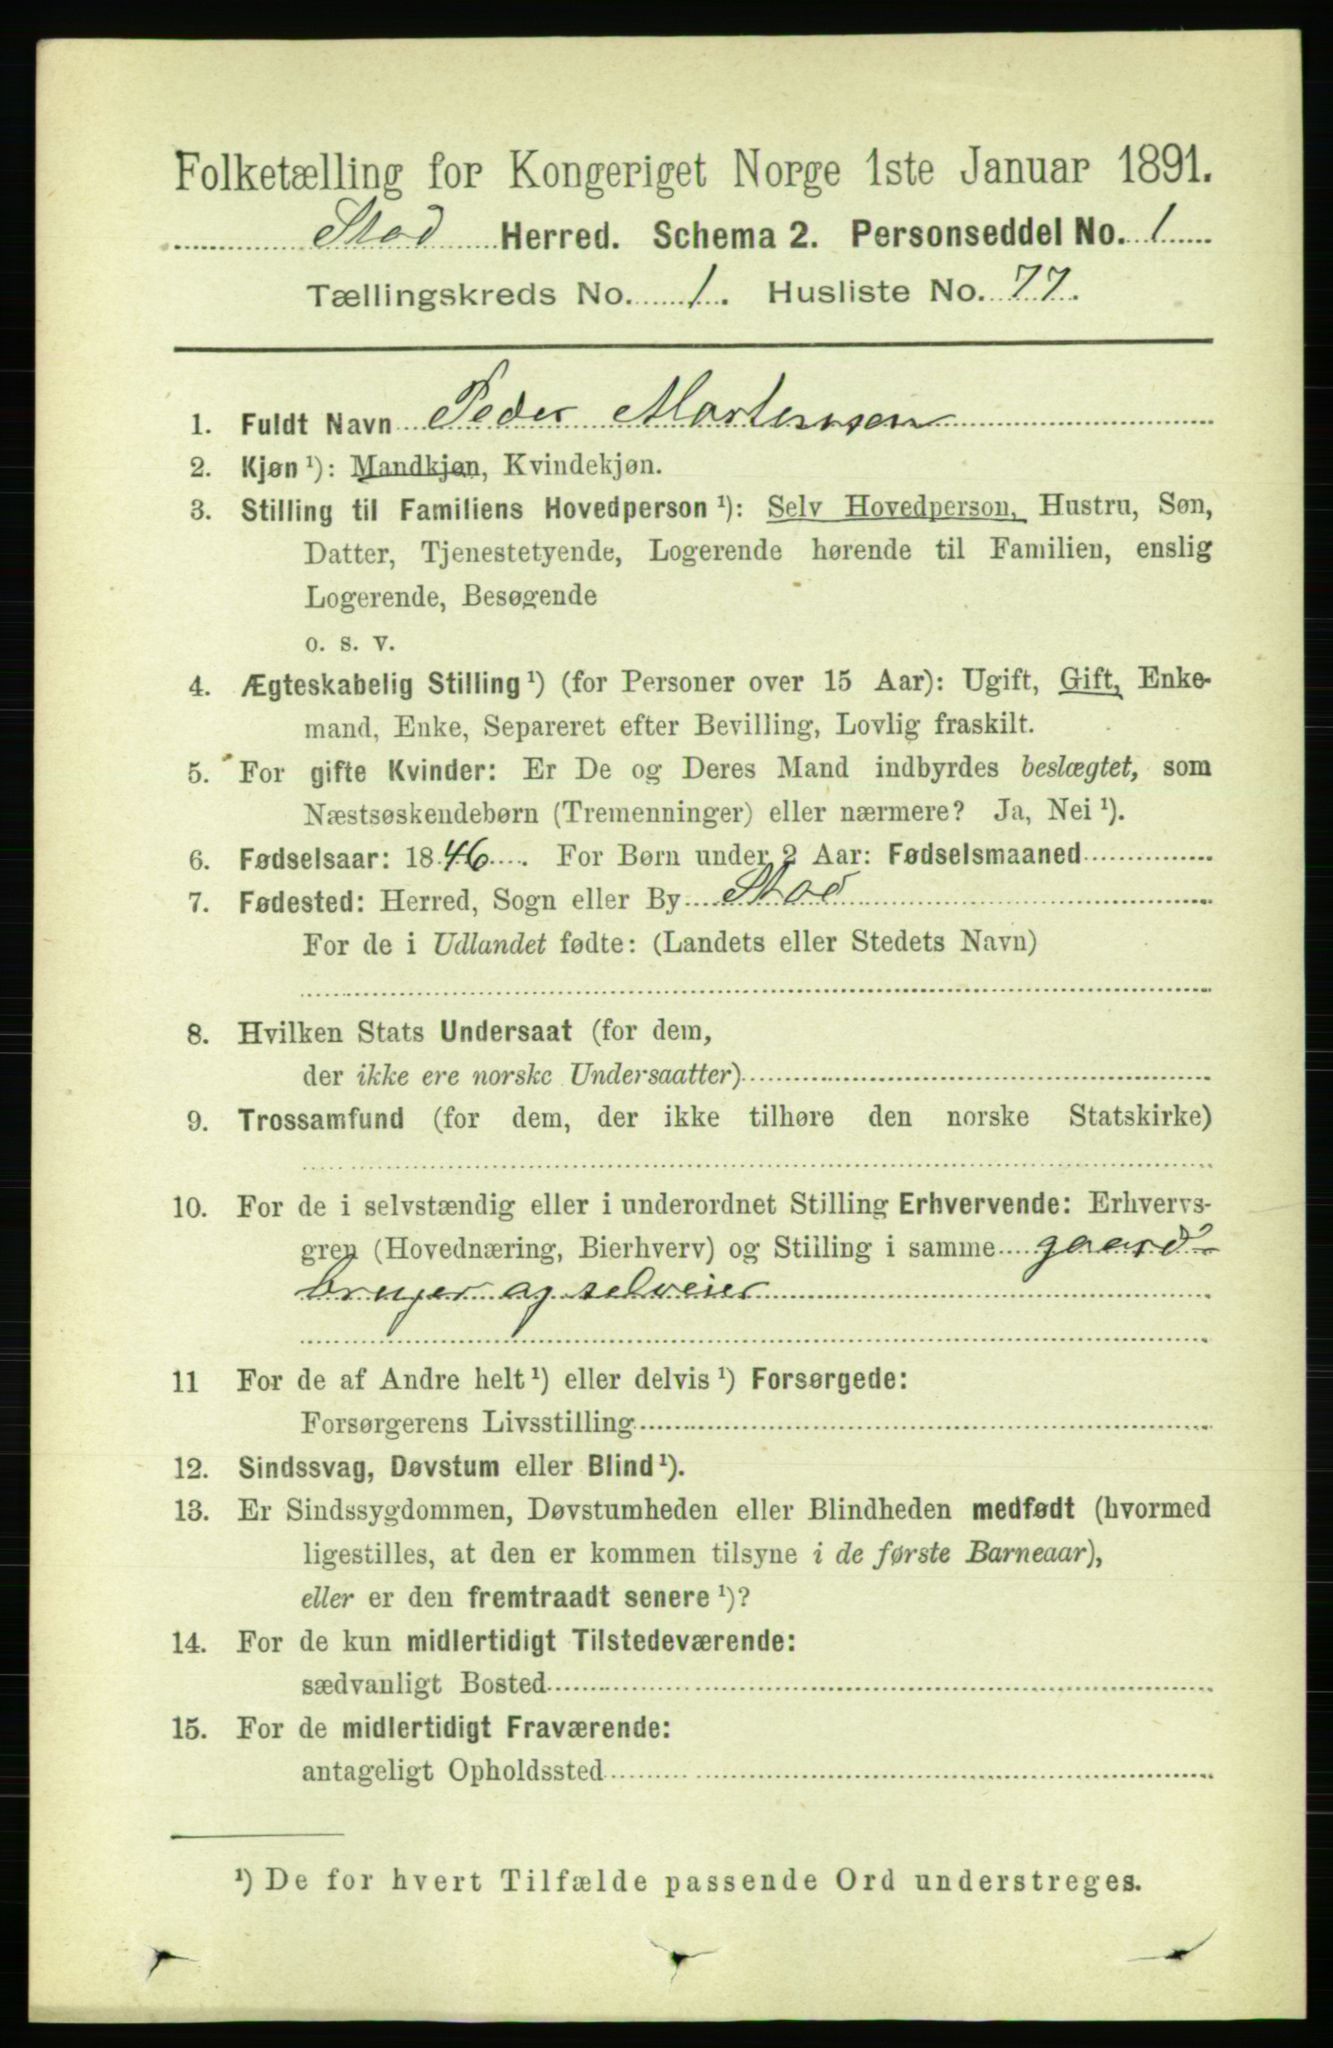 Folketælling for Kongeriget Norge 1ste Januar 1891.
Stod Herred. Schema 2. Personseddel No. 1
Tællingskreds No. 1. Husliste No. 77.
1. Fuldt Navn Peder Mortensen
2. Kjøn ¹): Mandkjøn, Kvindekjøn.
3. Stilling til Familiens Hovedperson ¹): Selv Hovedperson, Hustru, Søn,
Datter, Tjenestetyende, Logerende hørende til Familien, enslig
Logerende, Besøgende
o. s. v.
4. Ægteskabelig Stilling ¹) (for Personer over 15 Aar): Ugift, Gift, Enke-
mand, Enke, Separeret efter Bevilling, Lovlig fraskilt.
5. For gifte Kvinder: Er De og Deres Mand indbyrdes beslægtet, som
Næstsøskendebørn (Tremenninger) eller nærmere? Ja, Nei ¹).
6. Fødselsaar: 1846. For Børn under 2 Aar: Fødselsmaaned
7. Fødested: Herred, Sogn eller By Stod
For de i Udlandet fødte: (Landets eller Stedets Navn)
8. Hvilken Stats Undersaat (for dem,
der ikke ere norske Undersaatter)
9. Trossamfund (for dem, der ikke tilhøre den norske Statskirke)
10. For de i selvstændig eller i underordnet Stilling Erhvervende: Erhvervs-
gren (Hovednæring, Bierhverv) og Stilling i samme gaard-
bruger og selveier
11 For de af Andre helt ¹) eller delvis ¹) Forsørgede:
Forsørgerens Livsstilling
12. Sindssvag, Døvstum eller Blind ¹).
13. Er Sindssygdommen, Døvstumheden eller Blindheden medfødt (hvormed
ligestilles, at den er kommen tilsyne i de første Barneaar),
eller er den fremtraadt senere ¹)?
14. For de kun midlertidigt Tilstedeværende:
sædvanligt Bosted
15. For de midlertidigt Fraværende:
antageligt Opholdssted
¹) De for hvert Tilfælde passende Ord understreges.